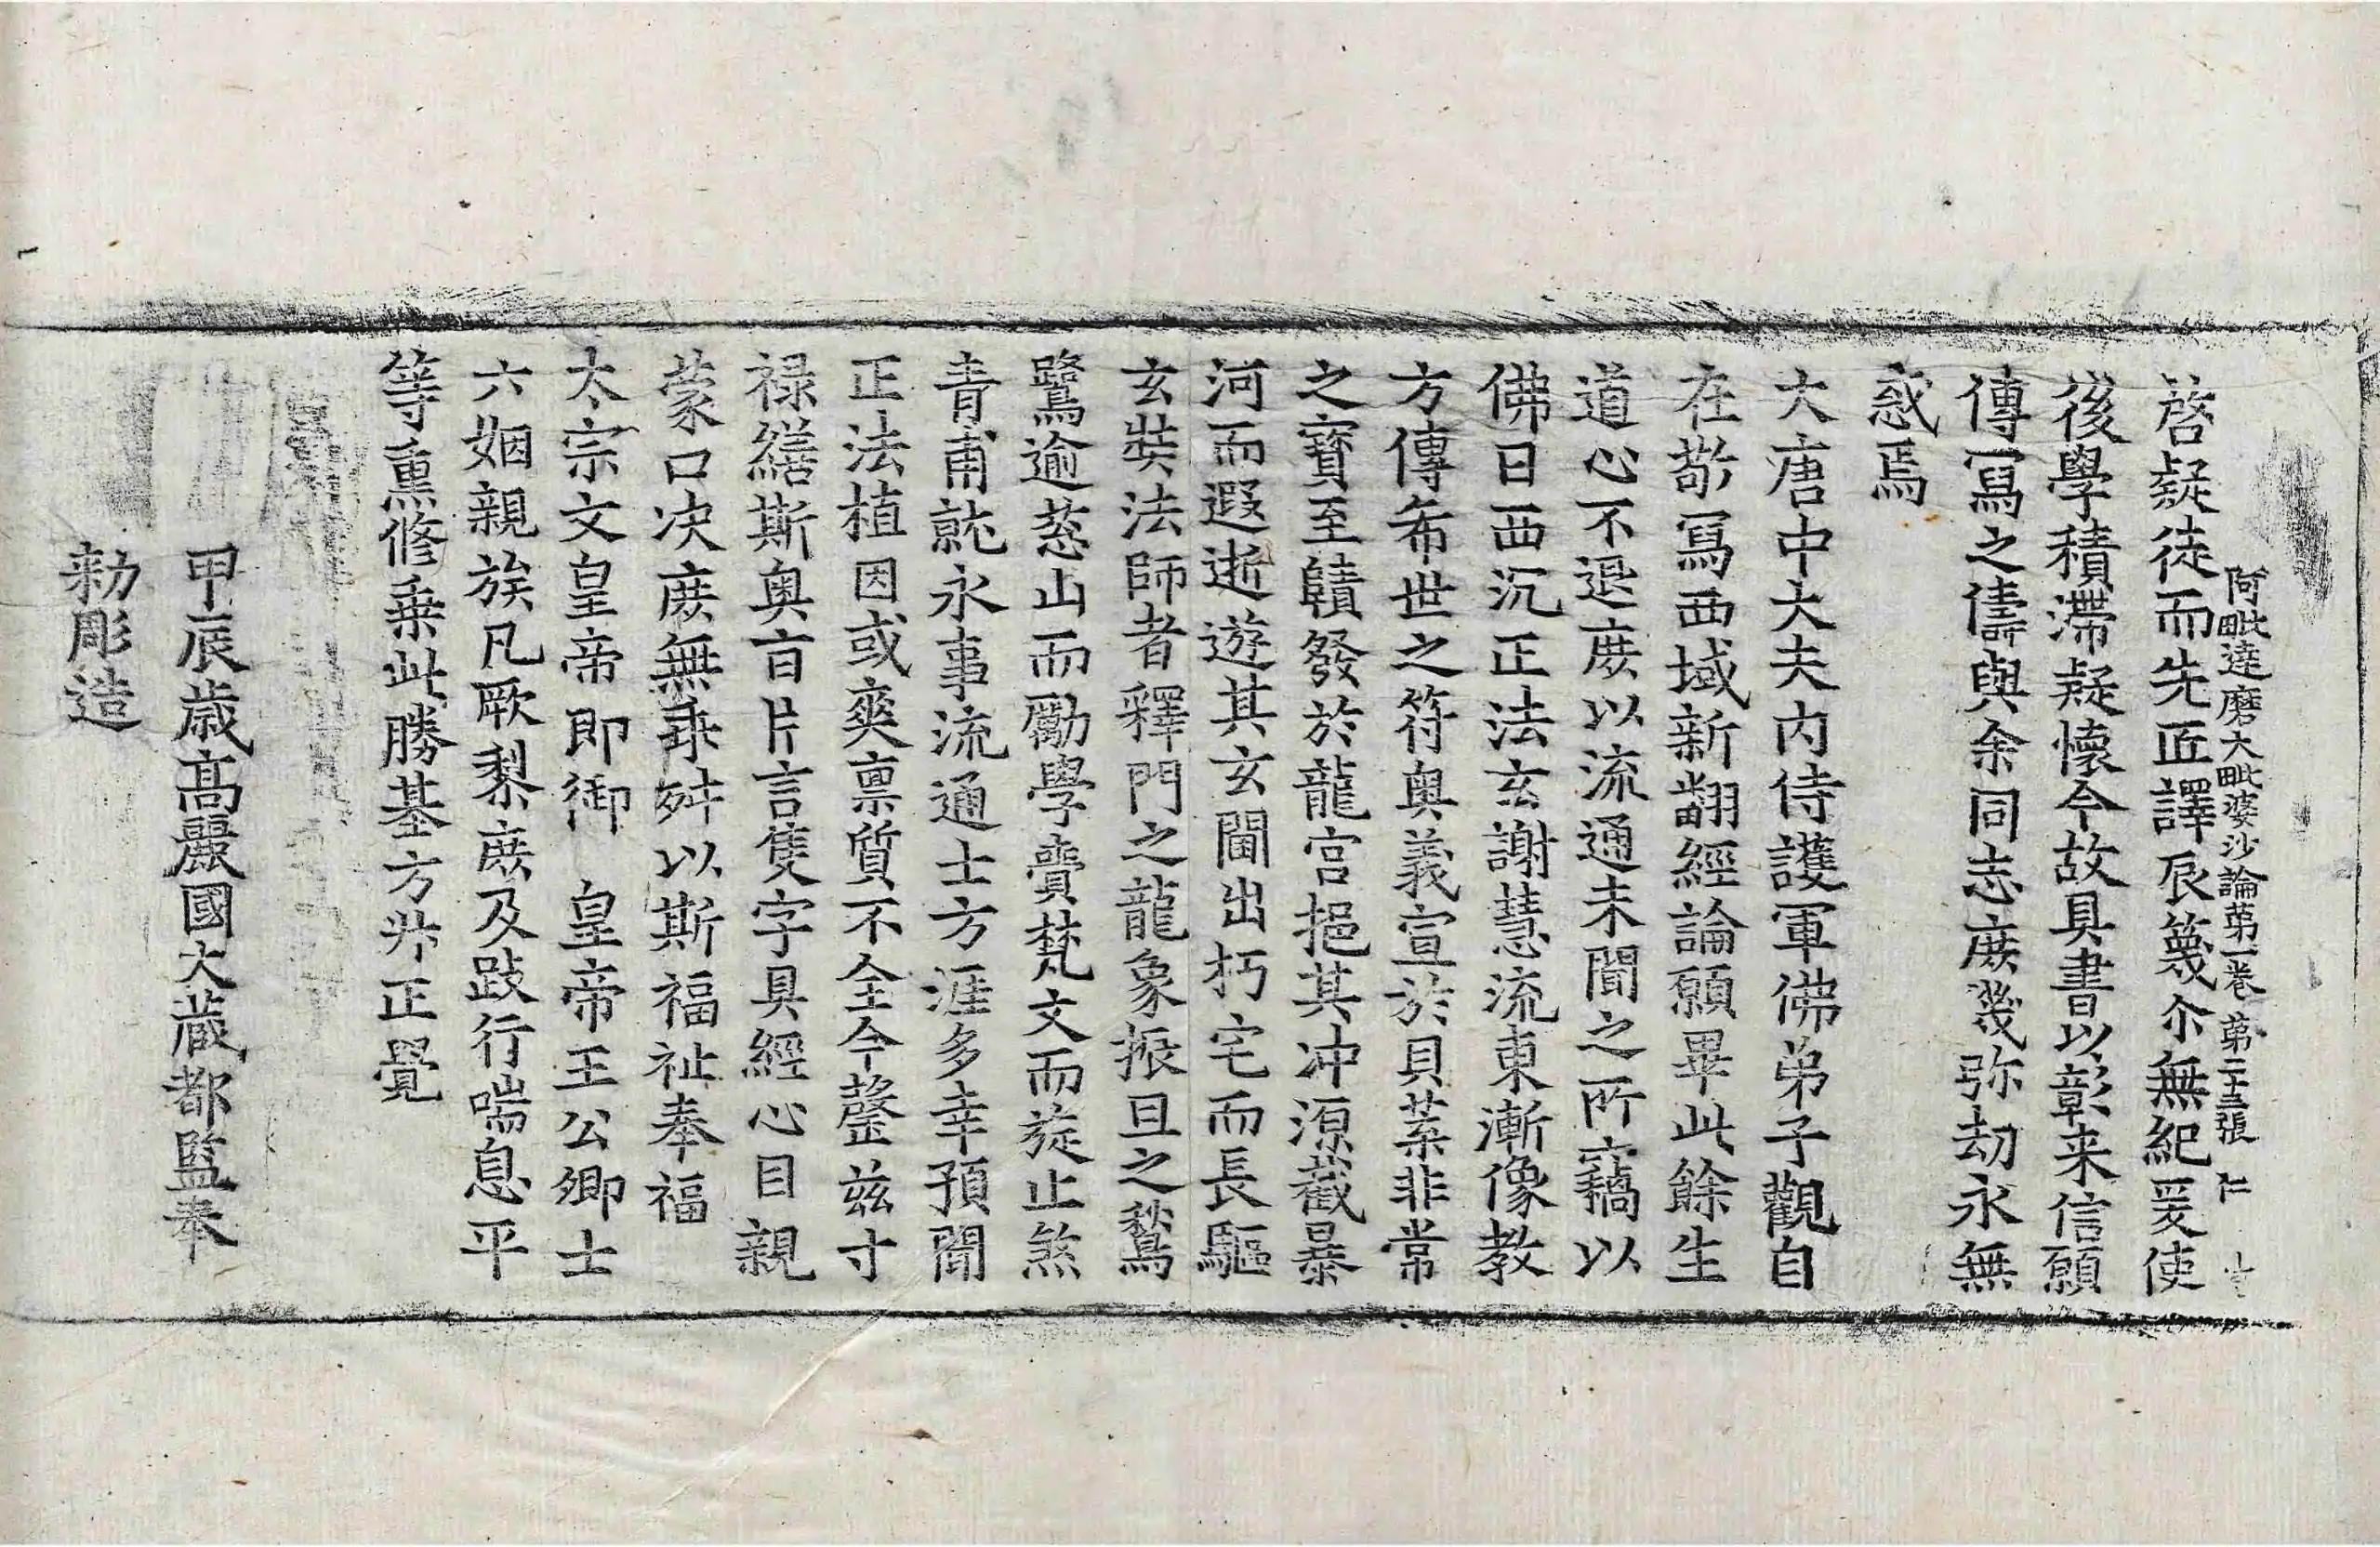 阿毗達磨大毗婆沙論第一卷 第二十三張 仁
啓疑徒而先匠譯辰篾尒無紀爰使
後學積滯疑懷今故具書以彰来信願
傳寫之儔與余同志庻㡬弥劫永無
惑焉
大唐中大夫內侍護軍佛弟子觀自
在敬寫西域新翻經論願畢此餘生
道心不退庻以流通未聞之所竊以
佛日西沉正法玄謝慧流東漸像教
方傳布世之符奧義宣於貝葉非常
之寶至賾發於龍宮挹其冲源截暴
河而遐逝遊其玄閫出朽宅而長驅
玄奘法師者釋門之龍象振旦之鶖
鷺逾葱山而勵學賷梵文而旋止煞
青甫就永事流通士方涯多幸預聞
正法植因或爽禀質不全今罄兹寸
禄繕斯奧旨片言隻字具經心目親
蒙口决庻無乖舛以斯福祉奉福
太宗文皇帝即御 皇帝王公卿士
六姻親族凡厥黎庻及跂行喘息平
等熏修乗此勝基方𣅜正覺
甲辰歳髙麗國大藏都監奉
勑彫造